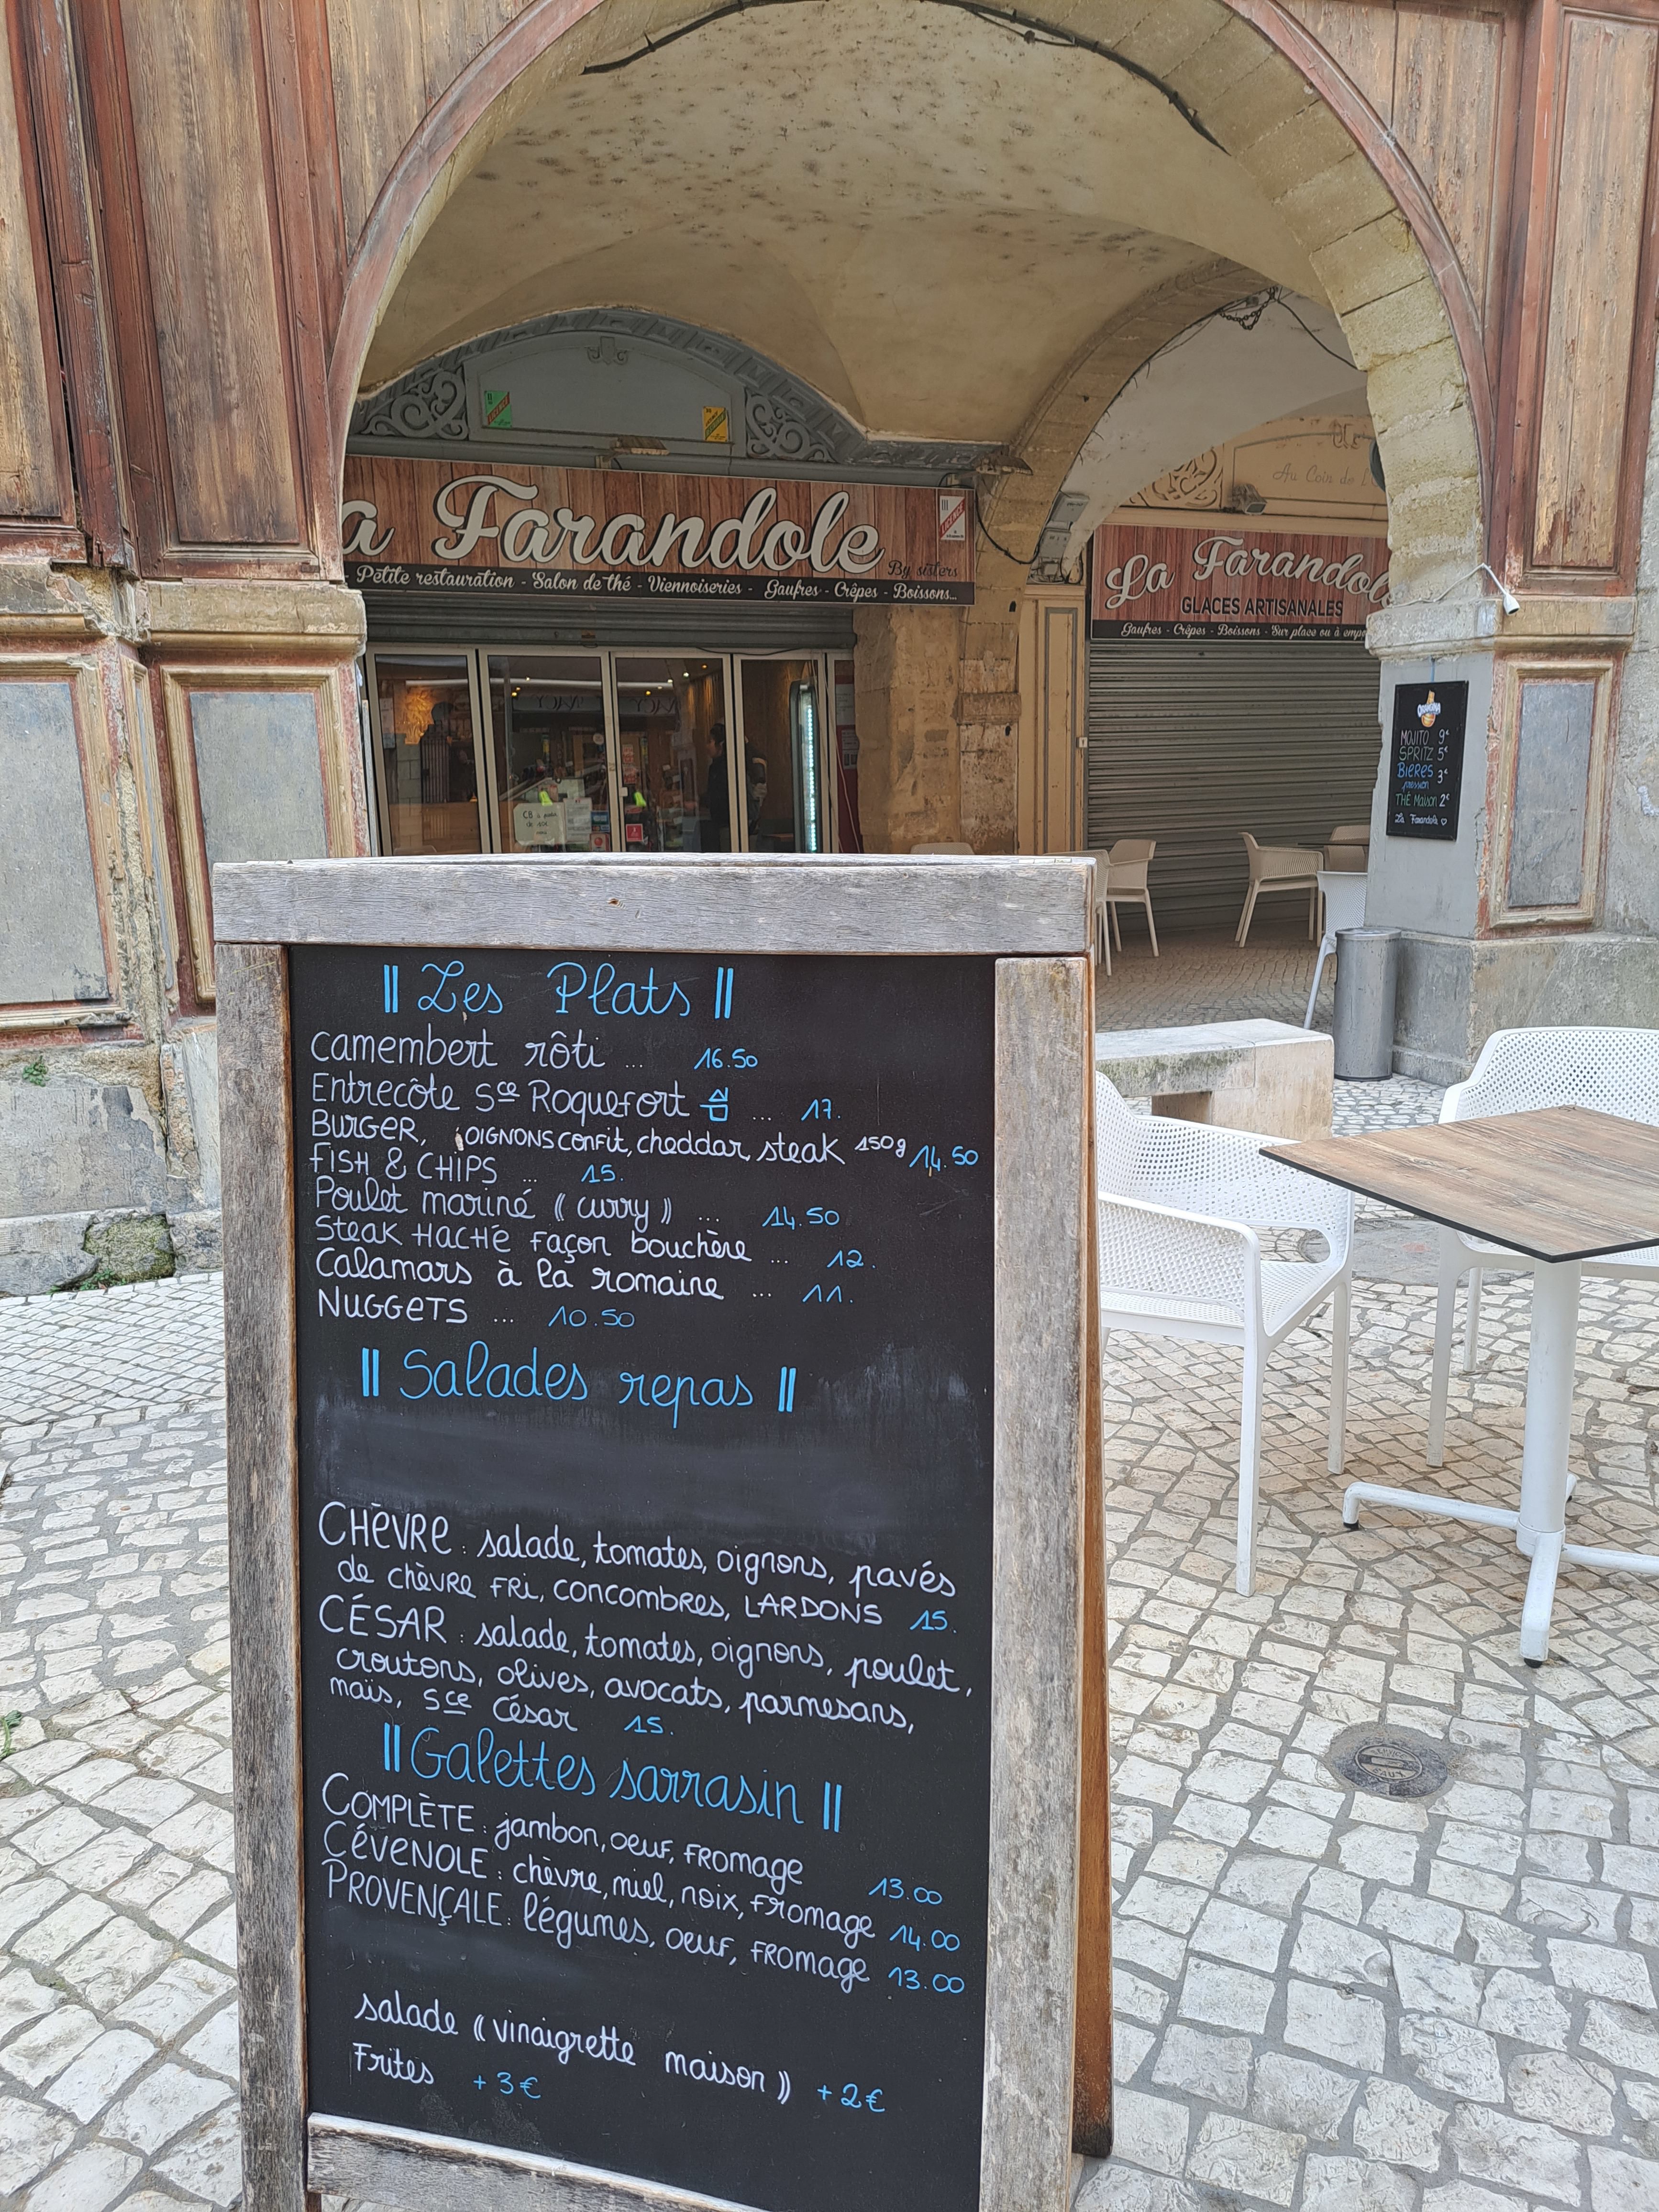 a Farandole
By sisters
Petite restauration - Salon de thé - Viennoiseries - Gaufres - Crêpes - Boissons...
LICENCE
Au Coin de
La Farandole
GLACES ARTISANALES
Gaufres - Crêpes - Boissons - Sur place ou à empo
ORANGINA
MOJITO 9€
SPRITZ 5€
BIERES 3€
pression
THÉ Maison 2€
La Farandole ♡
CB à partir
de 10€
|| Les Plats ||
camembert rôti ... 16.50
Entrecôte Sce Roquefort ... 17.
BURGER, OIGNONS CONFIT, cheddar, steak 150g 14.50
FISH & CHIPS ... 15.
Poulet mariné (( curry )) ... 14.50
Steak HACHÉ façon bouchère ... 12.
Calamars à la romaine ... 11.
NUGGETS ... 10.50
|| Salades repas ||
CHÈVRE : salade, tomates, oignons, pavés
de chèvre FRi, concombres, LARDONS 15.
CÉSAR : salade, tomates, oignons, poulet,
croutons, olives, avocats, parmesans,
maïs, Sce César 15.
|| Galettes sarrasin ||
COMPLÈTE : jambon, oeuf, fromage 13.00
CÉVENOLE : chèvre, miel, noix, fromage 14.00
PROVENÇALE : légumes, oeuf, fromage 13.00
salade (( vinaigrette maison )) +2€
Frites +3€